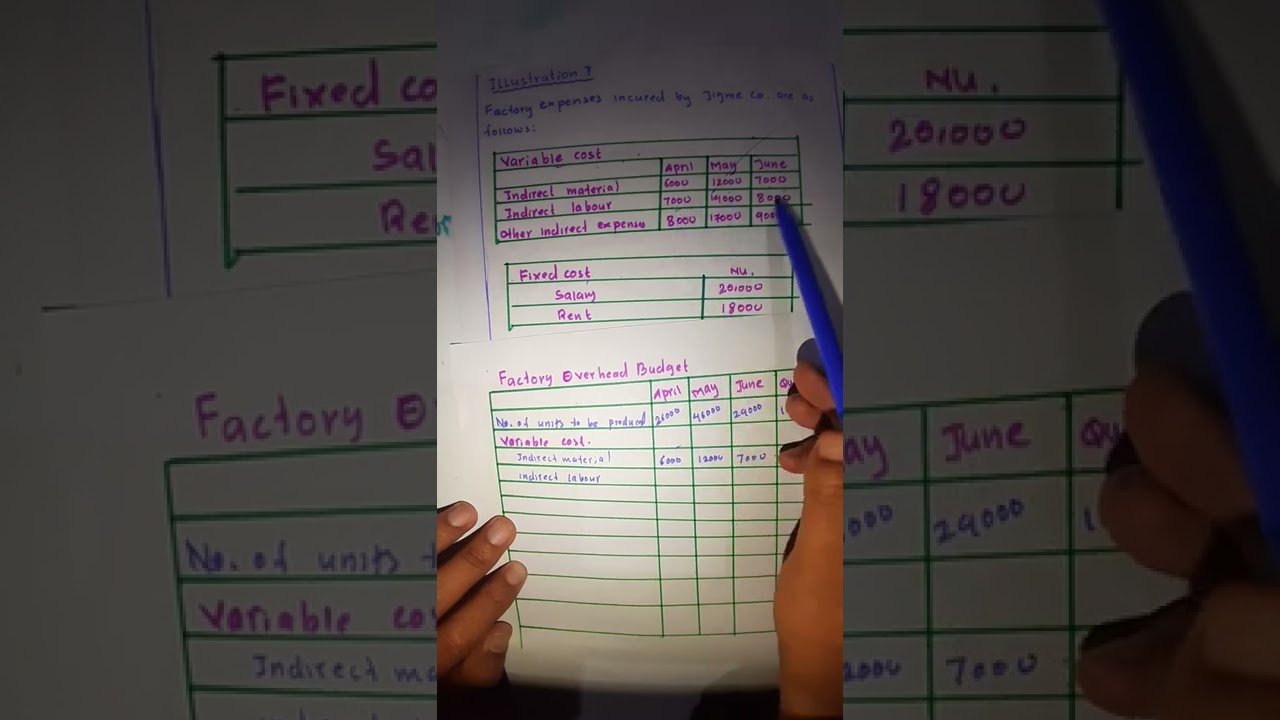 Illustration 7
Factory expenses incured by Jigme Co. are as
follows:
Variable cost
April May June
Indirect material 6000 12000 7000
Indirect labour 7000 8000
Other indirect expenses 8000 17000
Fixed cost NU.
Salary 20,000
Rent 18000
Factory Overhead Budget
April May June
No. of units to be produced 26000 46000 29000
Variable cost.
Indirect material 6000 12000 7000
Indirect labour